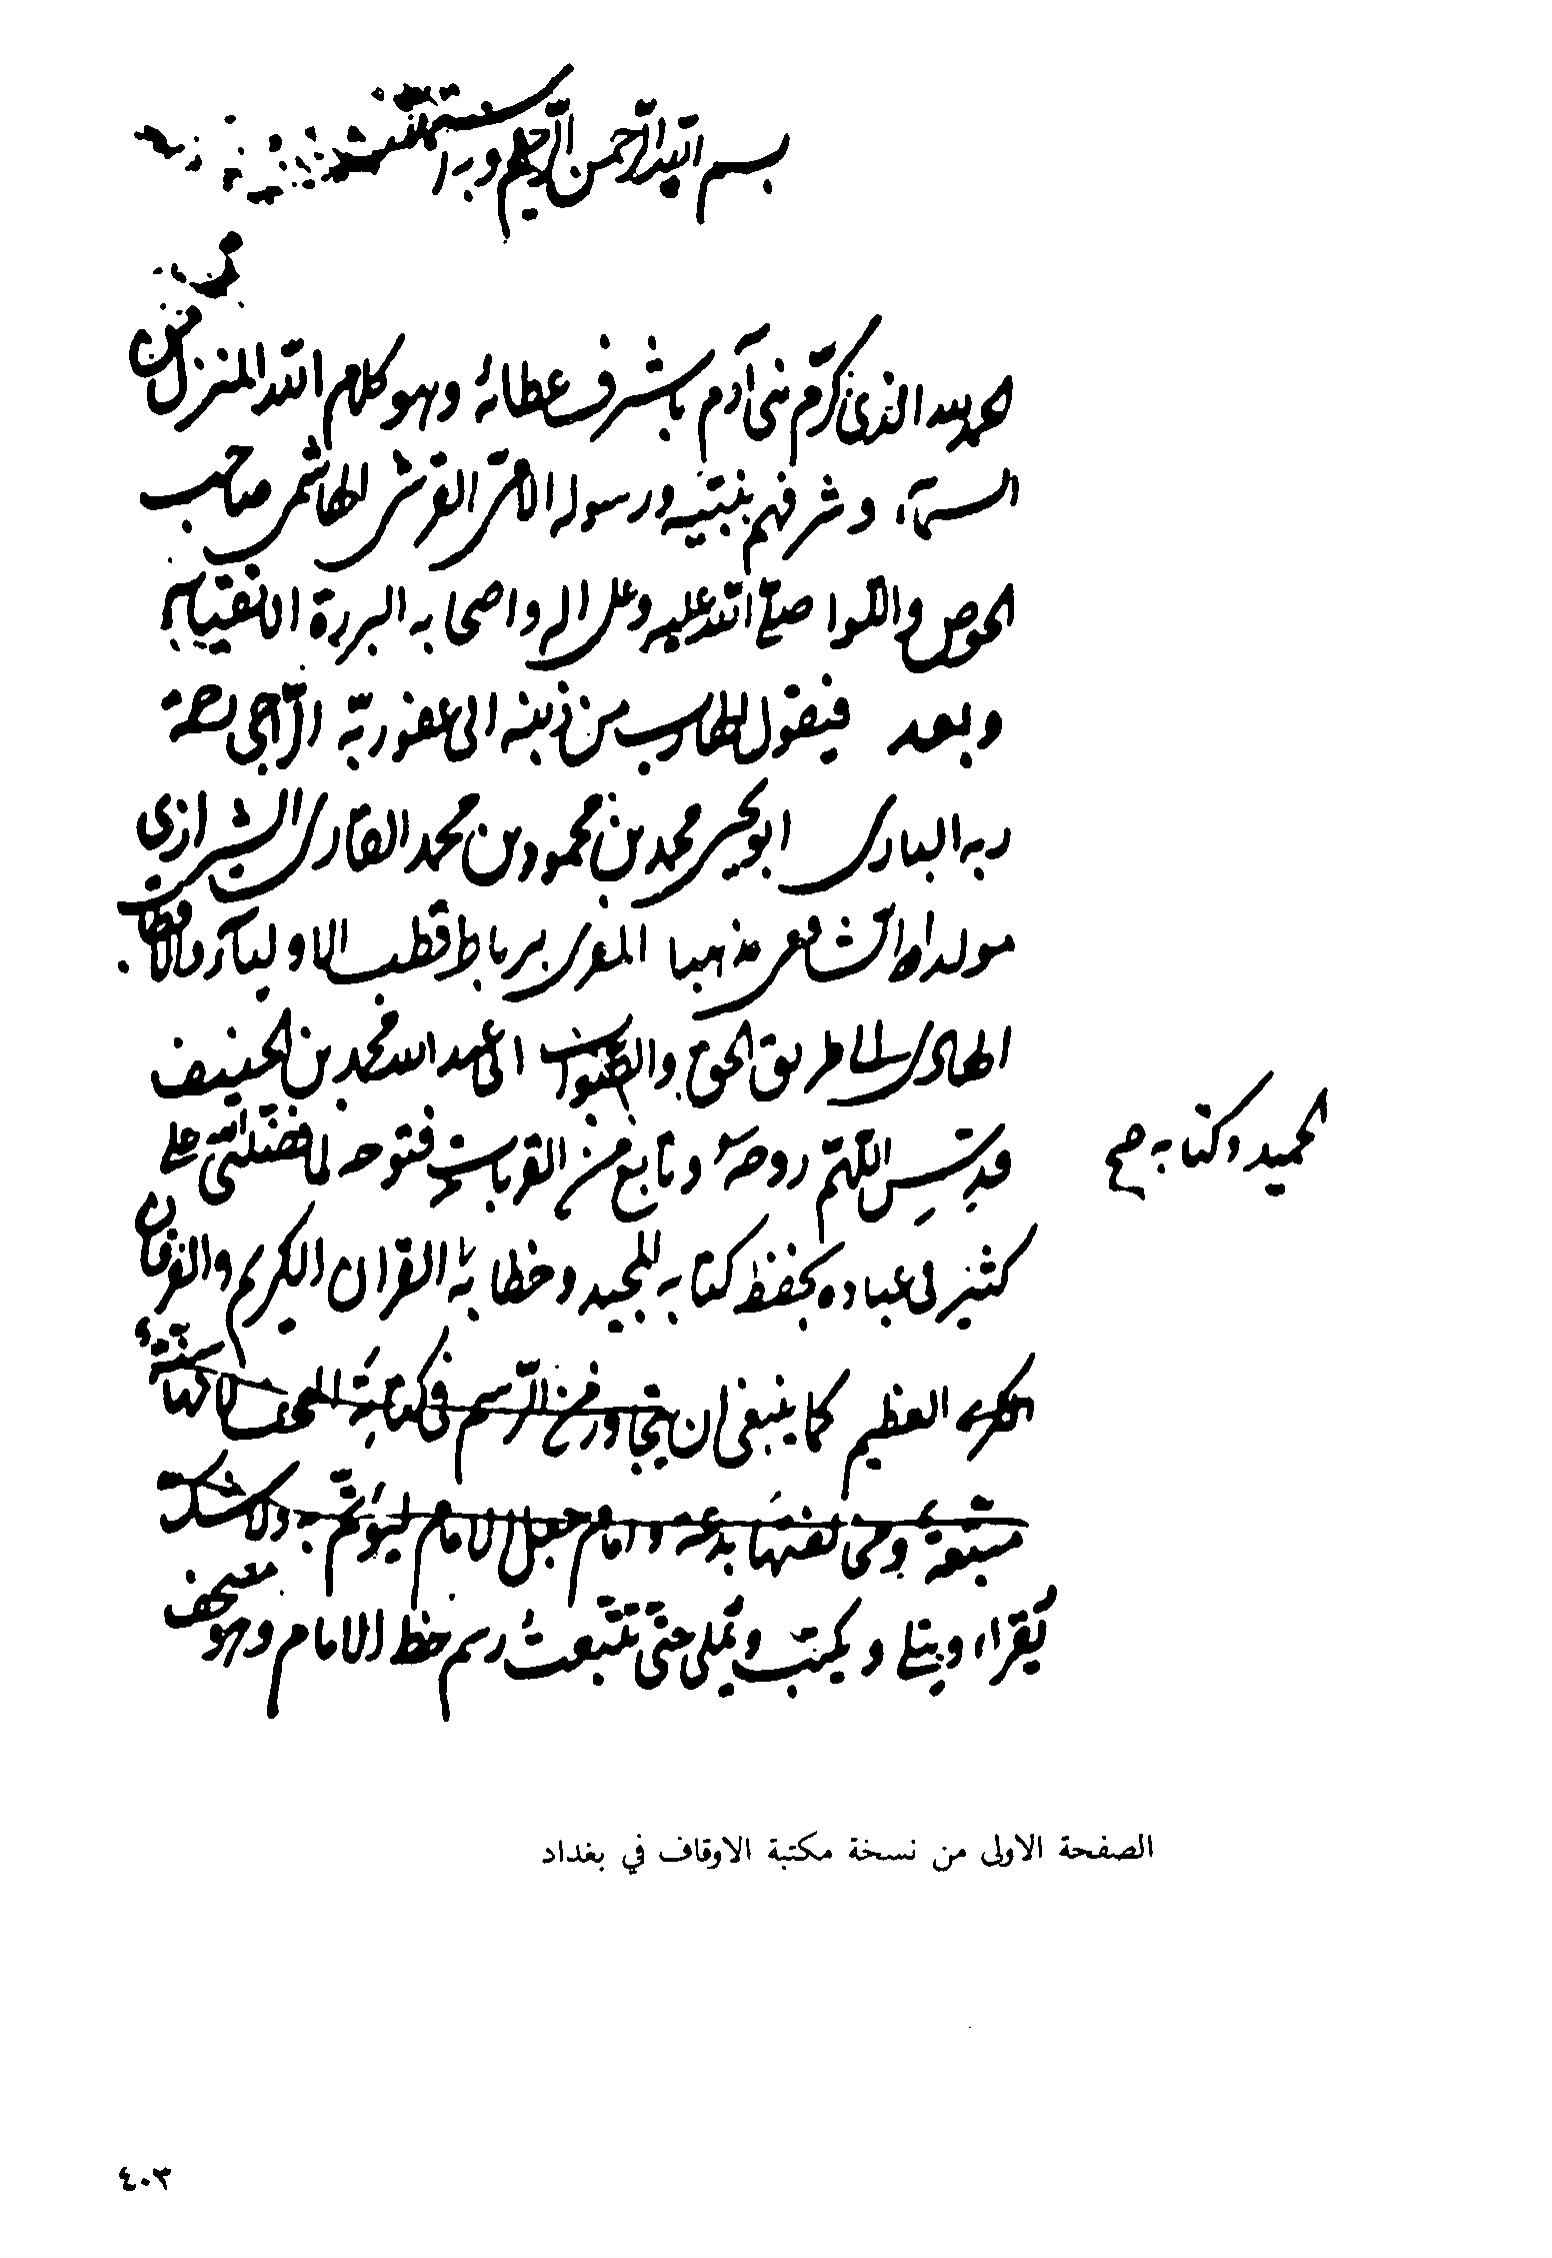 بسم الله الرحمن الرحيم وبه
الحمد لله الذي كرّم بني آدم باشرف عطائه وهو كلام الله المنزل من
السمآء وشرفهم بنبيّه ورسوله الامي القرشي الهاشمي صاحب
الحوض واللوا صلى الله عليه وعلى اله واصحابه البررة الاتقياء
وبعد فيقول الهارب من ذنبه الى عفو ربّه الرّاجي رحمة
ربه الباري محمد بن محمود بن محمد القاري الشيرازي
مولدا الشافعي مذهبا المقري برباط قطب الاوليآء والاقطاب
الهادي الى طريق الحق والصّواب ابي عبد الله محمد بن الخفيف
قدّس اللّهم روحه وتابع من القربات فتوحه لما فضّلني الله على
كثير من عباده بحفظ كتابه المجيد وخطابه القران الكريم والفرقان
الحميد وكتابه صح
العظيم كما ينبغي ان يتجاوز من الرّسم في كتابة المصحف لان كتابته
سنة متبعة ومخالفتها بدعة وامام جعل الامام ليؤتمّ به ولا شك
يُقرا ويتلى ويكتب ويُملى حتى تتبعتُ رسم خط الامام وهو مصحف
الصفحة الاولى من نسخة مكتبة الاوقاف في بغداد
٤٠٣